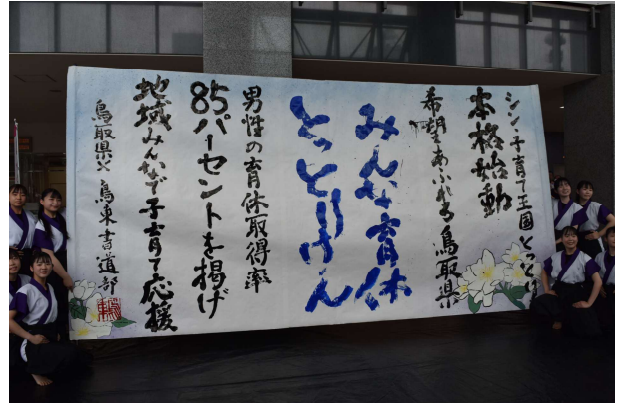 シン・子育て王国とっとり
本格始動
希望あふれる鳥取県
みんな育休
とっとりけん
男性の育休取得率
85パーセントを掲げ
地域みんなで子育て応援
鳥取県×鳥東書道部